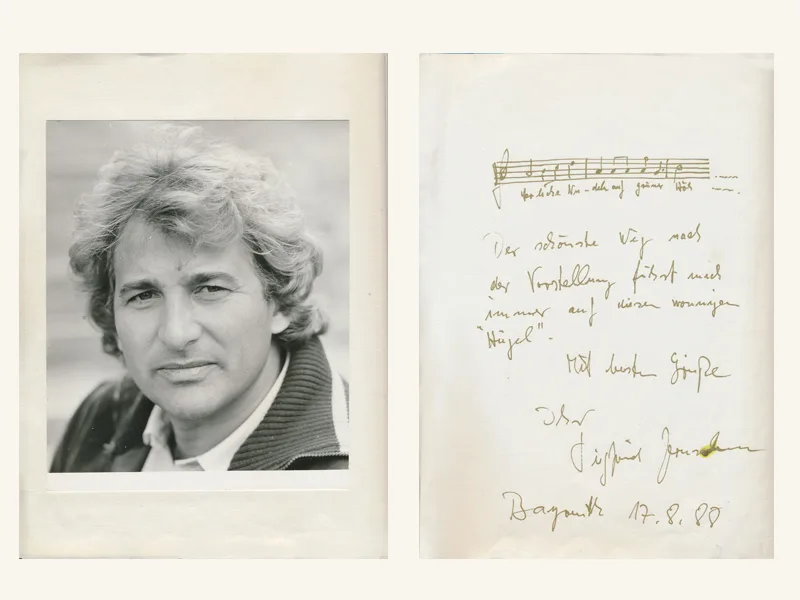 auf grüner Höh
Der schönste Weg nach
der Vorstellung führt mich
immer auf diesen wonnigen
"Hügel".
Mit besten Grüße
Ihr
Siegfried Jerusalem
Bayreuth 17.8.88